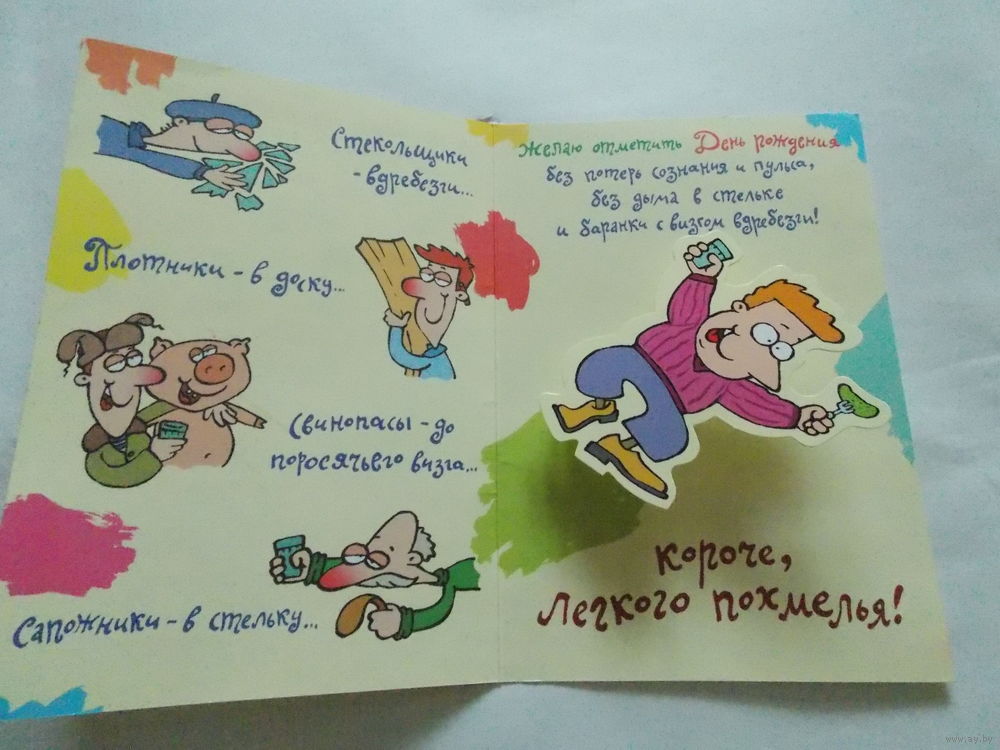 Стекольщики
-вдребезги...
Плотники - в доску...
Свинопасы - до
поросячьего визга...
Сапожники - в стельку...
Желаю отметить День рождения
без потерь сознания и пульса,
без дыма в стельке
и баранки с визгом вдребезги!
короче,
легкого похмелья!
www.ay.by